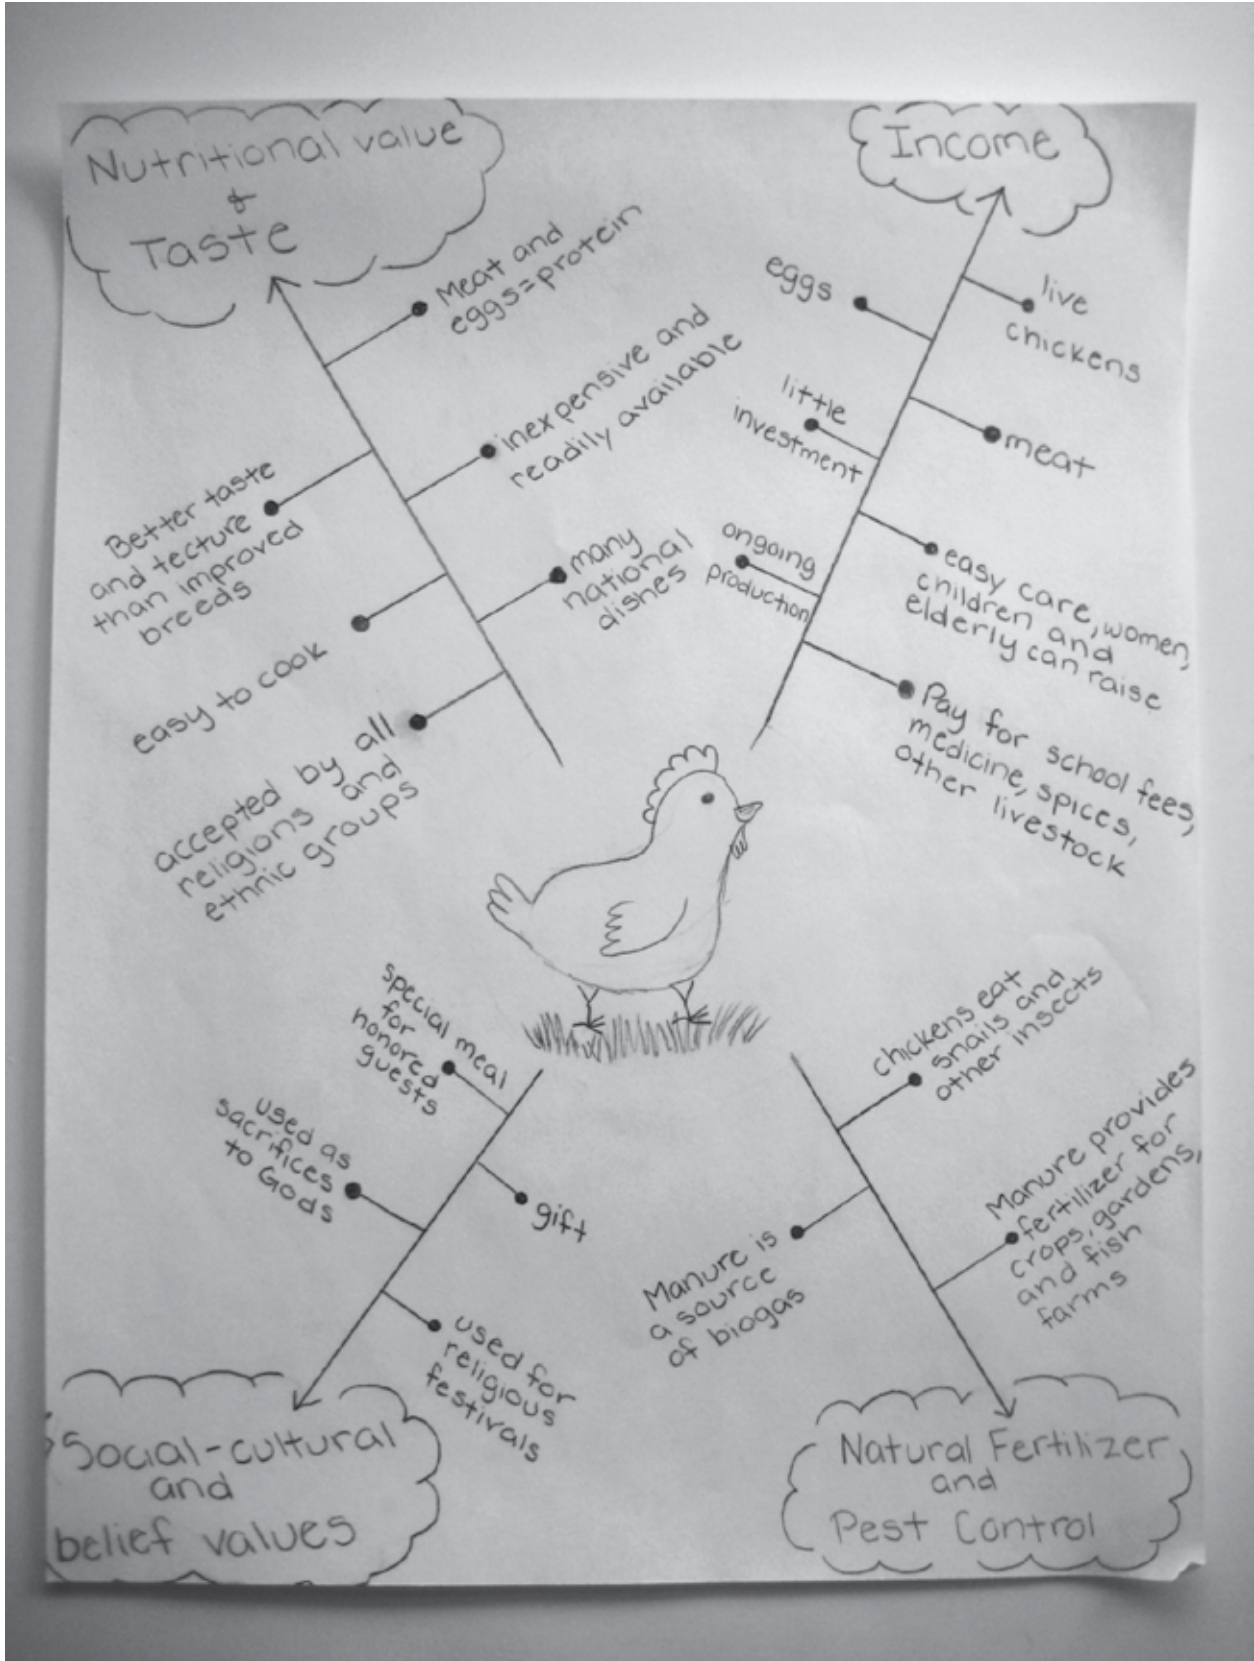 Nutritional value
&
Taste
Meat and
eggs=protein
inexpensive and
readily available
many
national
dishes
Better taste
and tecture
than improved
breeds
easy to cook
accepted by all
religions and
ethnic groups
Income
eggs
live
chickens
little
investment
meat
ongoing
production
easy care, women,
children and
elderly can raise
Pay for school fees,
medicine, spices,
other livestock
special meal
for
honored
guests
used as
sacrifices
to Gods
gift
used for
religious
festivals
Social-cultural
and
belief values
chickens eat
snails and
other insects
Manure provides
fertilizer for
crops, gardens,
and fish
farms
Manure is
a source
of biogas
Natural Fertilizer
and
Pest Control